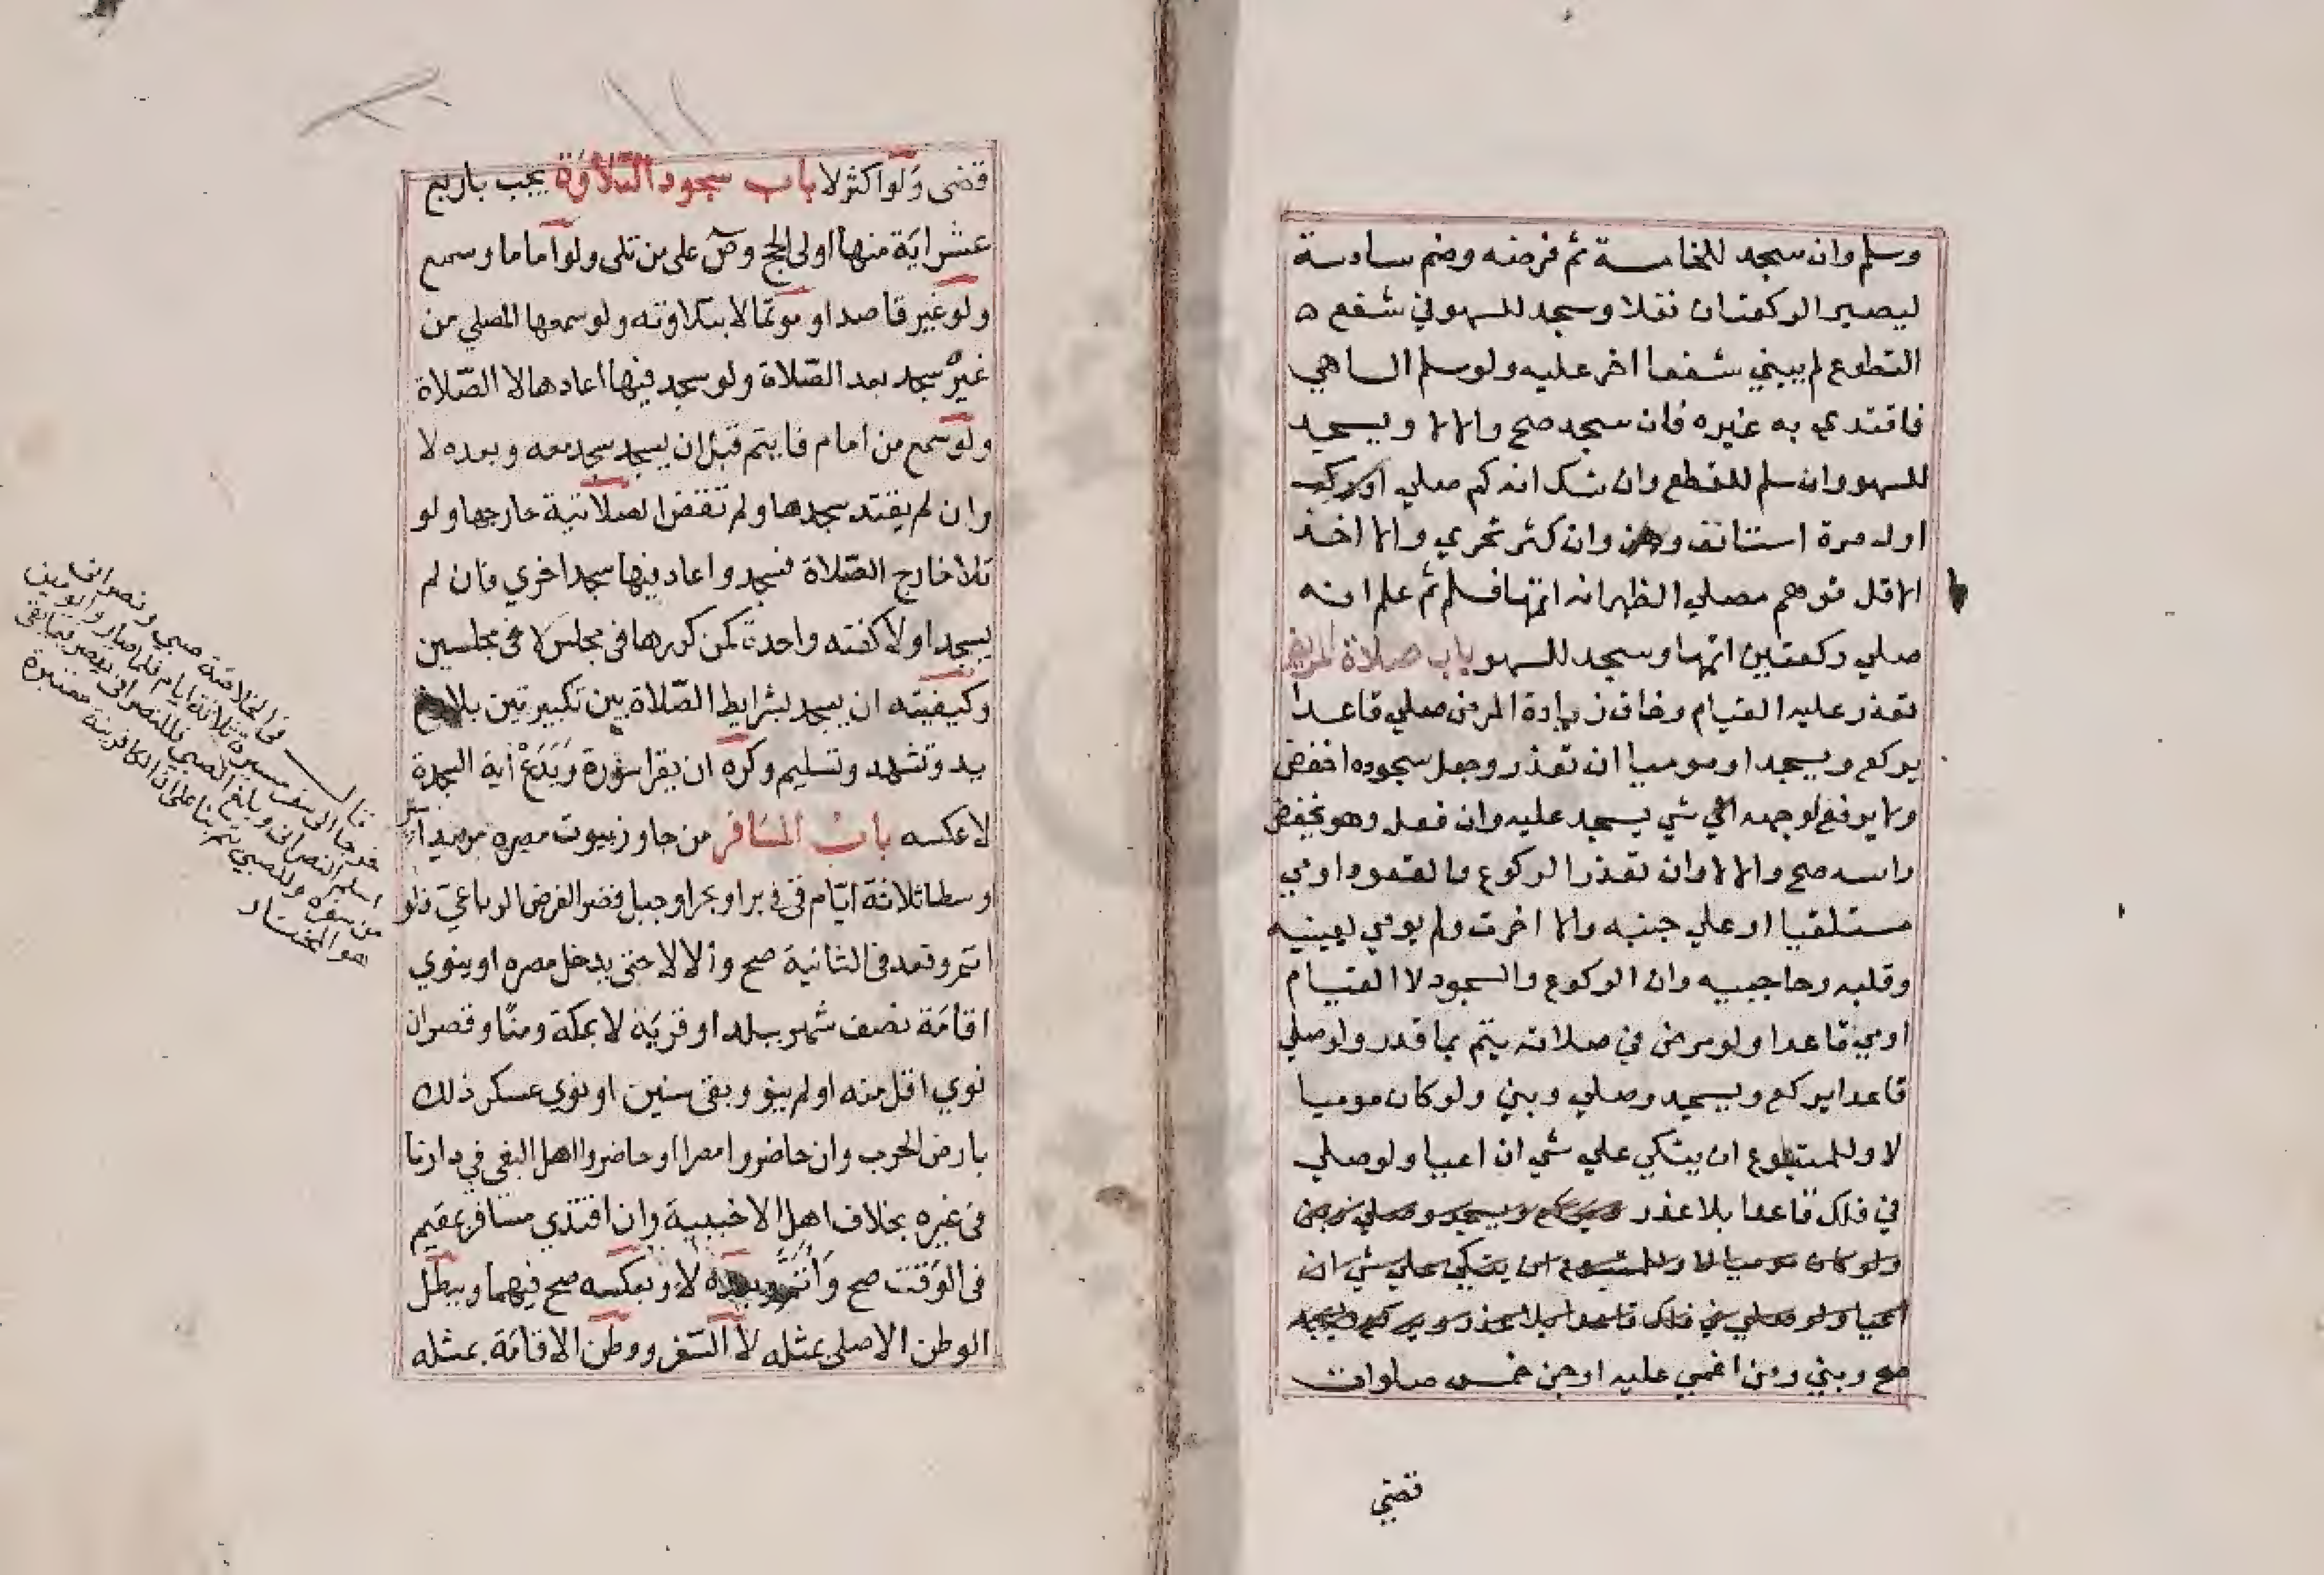 وسلم وان سجد للخامسة تم فرضه وضم سادسة
ليصير الركعتان نفلا وسجد للسهو في شفع ه
التطوع لم يبني شفعا اخر عليه ولو سلم الساهي
فاقتدي به غيره فان سجد صح والا لا ويسجد
للسهو وان سلم للقطع وان شك انه كم صلي
اول مرة استانف وان كثر تحري والا اخذ
الاقل توهم مصلي الظهر انه اتمها فسلم ثم علم انه
صلي ركعتين اتمها وسجد للسهو باب صلاة المريض
تعذر عليه القيام وخاف زيادة المرض صلي قاعدا
يركع ويسجد او موميا ان تعذر وجعل سجوده اخفض
ولا يرفع لوجهه الي شي يسجد عليه وان فعل وهو يخفض
راسه صح والا لا وان تعذر الركوع والقعود اومي
مستلقيا او علي جنبه والا اخرت ولم يومي بعينيه
وقلبه وحاجبيه وان الركوع والسجود لا القيام
اومي قاعدا ولو مرض في صلاته يتم بما قدر ولو صلي
قاعدا يركع ويسجد وصلي وبني ولو كان موميا
لا وللمتطوع ان يتكي علي شي ان اعيا ولو صلي
في فلك قاعدا بلا عذر ويسجد وصلي وبني
ولو كان موميا لا وللمتطوع ان يتكي علي شي ان
اعيا ولو صلي في فلك قاعدا بلا عذر ويركع ويسجد
صح وبني ومن اغمي عليه او جن خمس صلوات
قضي
قضى ولو اكثر لا باب سجود التلاوة يجب باربع
عشر اية منها اولى الحج وص على من تلى ولو اماما وسمع
ولو غير قاصد او موتما لا بتلاوته ولو سمعها المصلي من
غيره سجد بعد الصلاة ولو سجد فيها اعادها لا الصلاة
ولو سمع من امام فايتم قبل ان يسجد سجد معه وبعده لا
وان لم يقتد سجدها ولم تقض الصلاتية خارجها ولو
تلا خارج الصلاة فسجد واعاد فيها سجد اخري فان لم
يسجد اولا كفته واحدة كمن كررها في مجلس لا في مجلسين
وكيفيته ان يسجد بشرايط الصلاة بين تكبيرتين بلا رفع
يد وتشهد وتسليم وكره ان يقرا سورة ويدع اية السجدة
لا عكسه باب المسافر من جاوز بيوت مصره مريدا سير
وسطا ثلاثة ايام في بر او بحر او جبل قصر الفرض الرباعي فلو
اتم وقعد في الثانية صح والا لا حتى يدخل مصره او ينوي
اقامة نصف شهر ببلد او قرية لا بمكة ومنا وقصر ان
نوي اقل منه او لم ينو وبقى سنين او نوي عسكر ذلك
بارض الحرب وان حاضروا مصرا او حاضروا اهل البغي في دارنا
في غيره بخلاف اهل الاخبيية وان اقتدي مسافر بمقيم
في الوقت صح واتم وبعده لا وبعكسه صح فيهما ويبطل
الوطن الاصلي بمثله لا السفر ووطن الاقامة بمثله
قال في الخلاصة صبي ونصراني
خرجا الى سفر مسيرة ثلاثة ايام فلما صار را يومين
اسلم النصراني وبلغ الصبي فالنصراني يقصر فيما بقي
من سفره والصبي يتم بنا على ان نية الكافر معتبرة
هو المختار